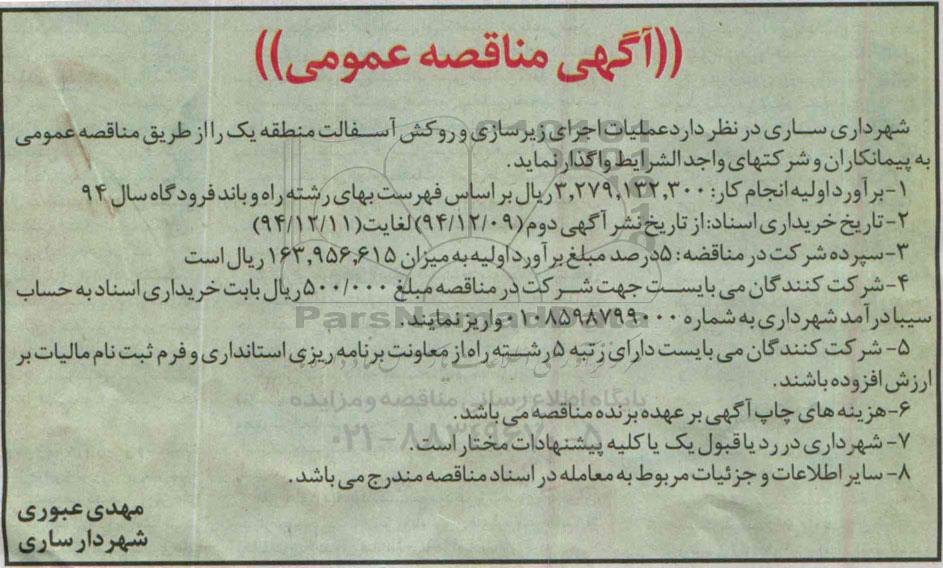 ((آگهی مناقصه عمومی))
شهرداری ساری در نظر دارد عملیات اجرای زیرسازی و روکش آسفالت منطقه یک را از طریق مناقصه عمومی
به پیمانکاران و شرکتهای واجد الشرایط واگذار نماید.
۱-برآورد اولیه انجام کار: ۳,۲۷۹,۱۳۲,۳۰۰ریال بر اساس فهرست بهای رشته راه و باند فرودگاه سال ۹۴
۲-تاریخ خریداری اسناد: از تاریخ نشر آگهی دوم (۹۴/۱۲/۰۹) لغایت (۹۴/۱۲/۱۱)
۳-سپرده شرکت در مناقضه: ۵درصد مبلغ برآورد اولیه به میزان ۱۶۳,۹۵۶,۶۱۵ ریال است
۴-شرکت کنندگان می بایست جهت شرکت در مناقصه مبلغ ۵۰۰/۰۰۰ریال بابت خریداری اسناد به حساب
سیبا درآمد شهرداری به شماره ۰۱۰۸۵۹۸۷۹۹۰۰۰ واریز نمایند.
ParsNamadData
۵- شرکت کنندگان می بایست دارای رتبه ۵ رشته راه از معاونت برنامه ریزی استانداری و فرم ثبت نام مالیات بر
ارزش افزوده باشند.
پایگاه اطلاع رسانی مناقصه و مزایده
۶-هزینه های چاپ آگهی بر عهده برنده مناقصه می باشد.
۰۲۱-۸۸۳۴۹۶۷۰-۵
۷- شهرداری در رد یا قبول یک یا کلیه پیشنهادات مختار است.
۸- سایر اطلاعات و جزئیات مربوط به معامله در اسناد مناقصه مندرج می باشد.
مهدی عبوری
شهردار ساری